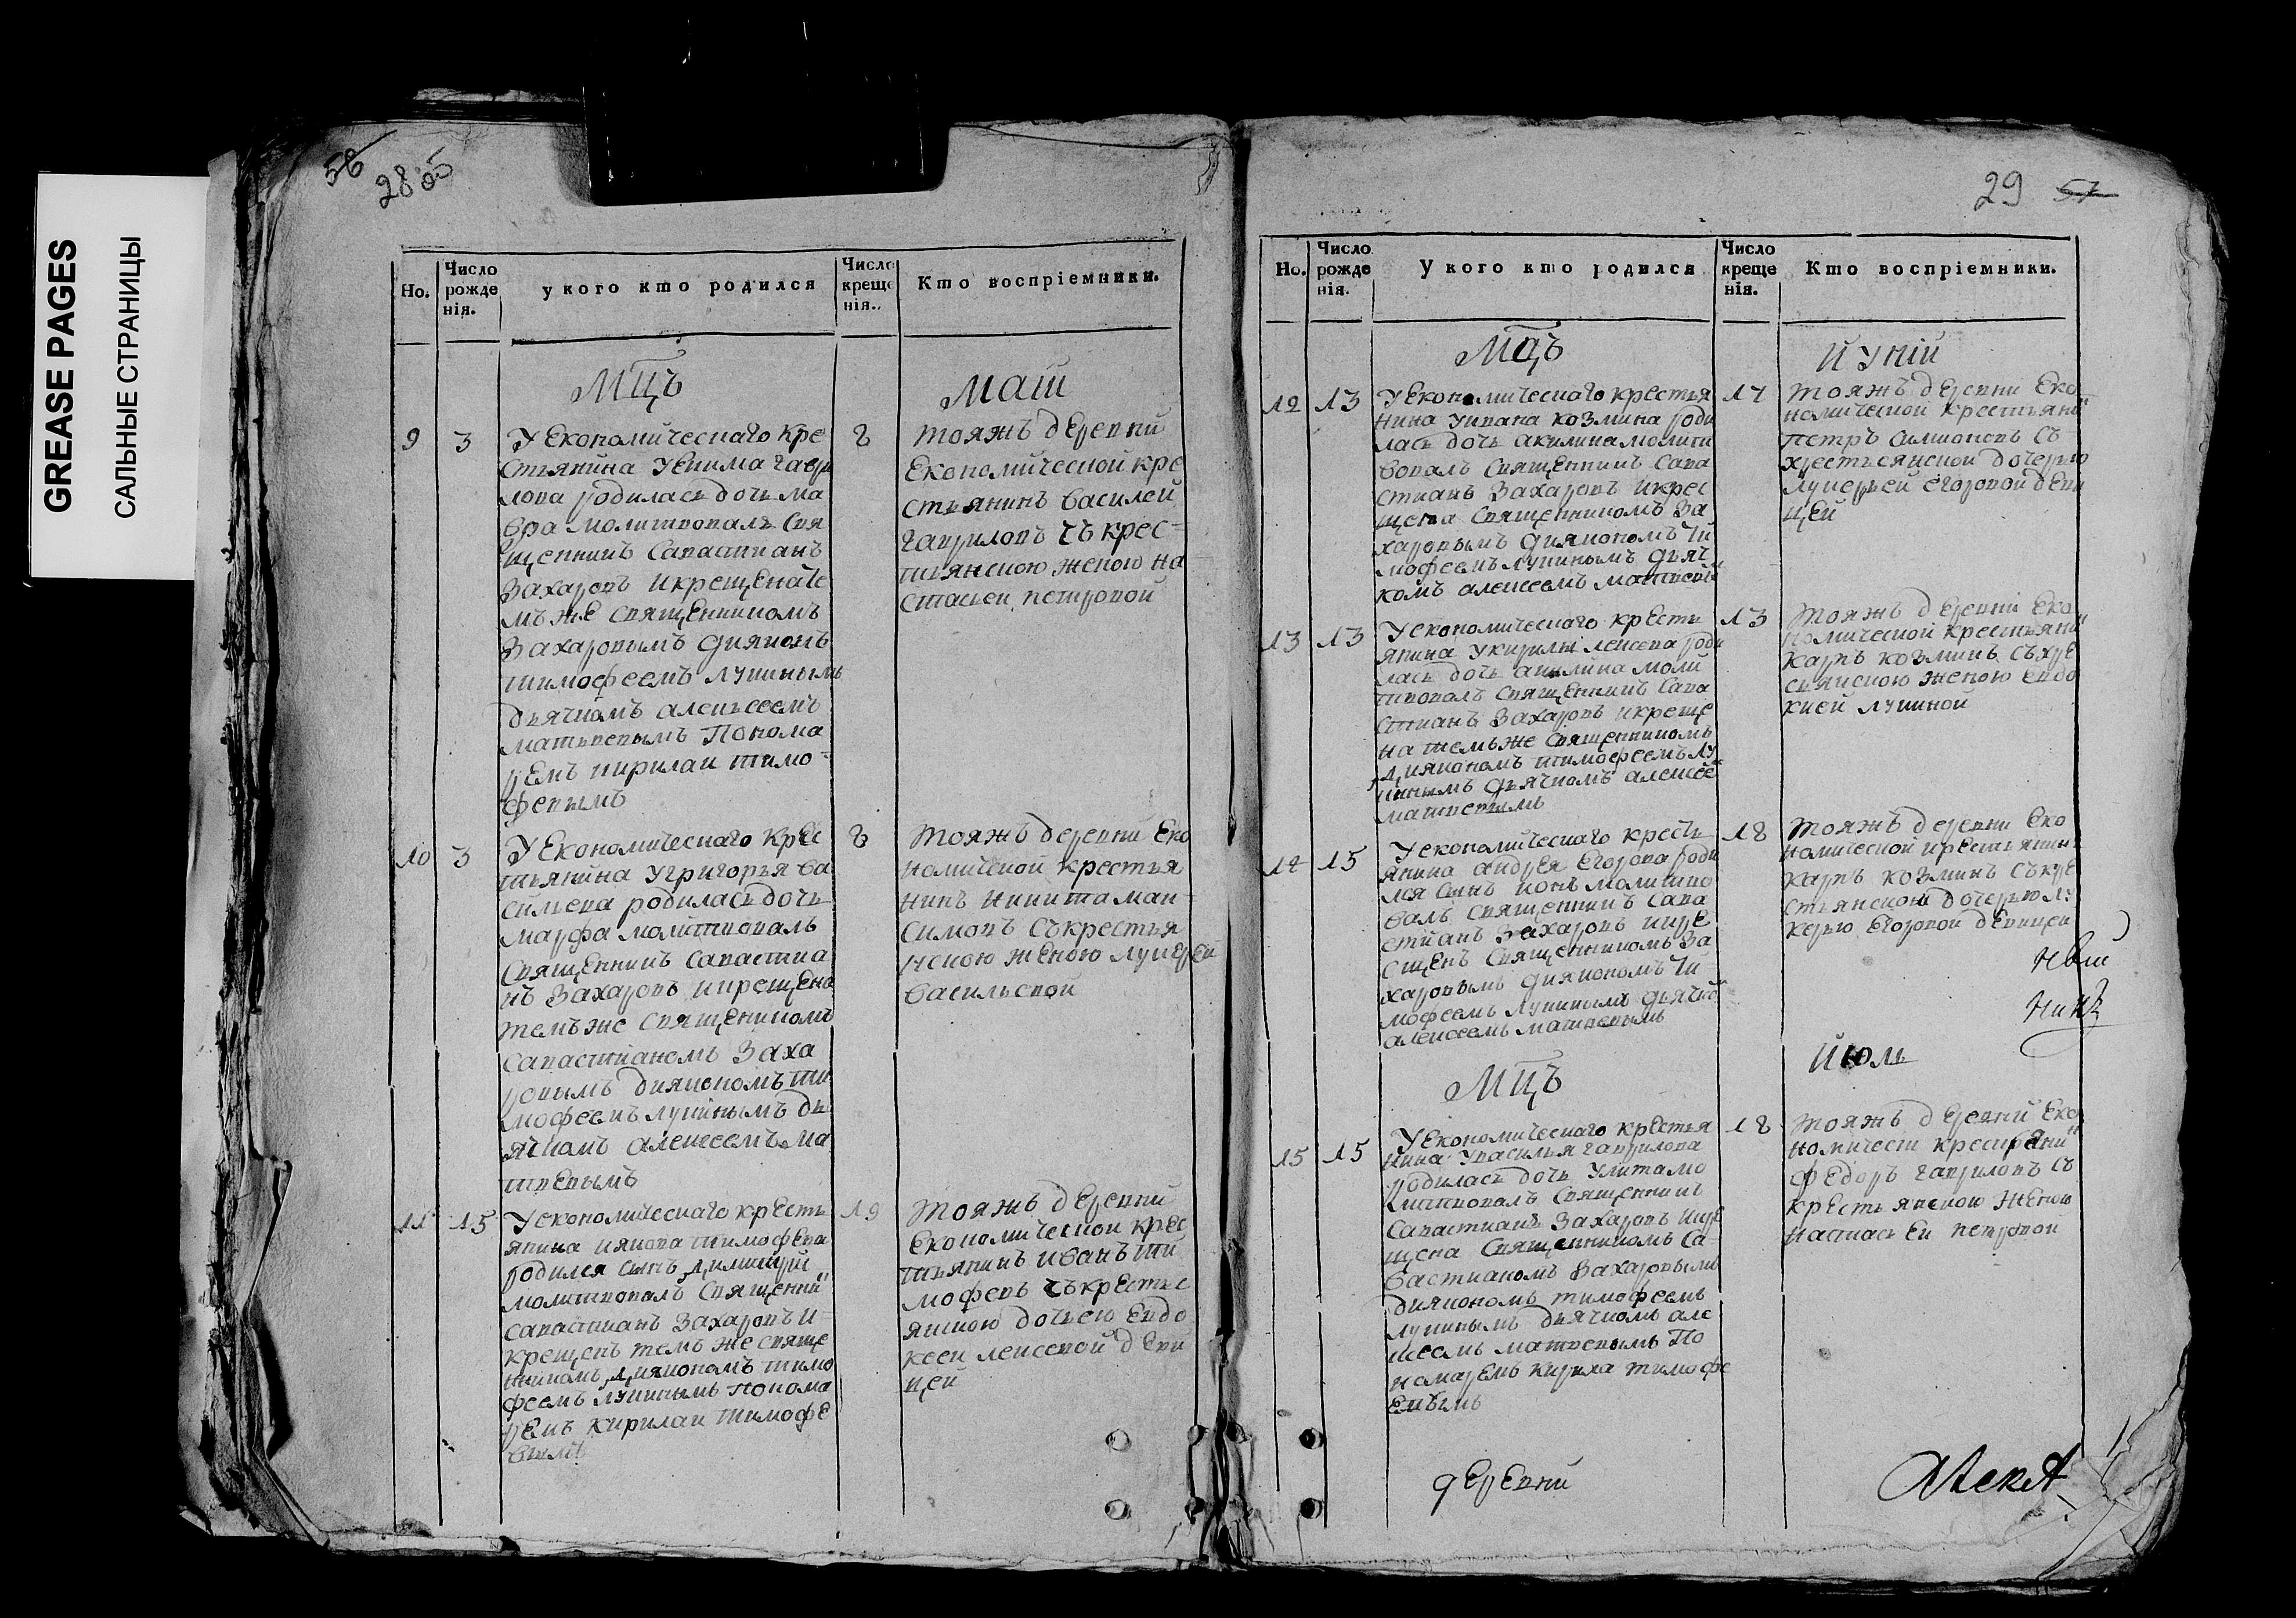 GREASE PAGES
САЛЬНЫЕ СТРАНИЦЫ
56
28
Но.
Число рожде нія.
у кого кто родился
Число креще нія.
Кто воспріемники.
Мцъ
маіи
9
3
У Економическаго кре
стьянина Уефима гаври
лова родилась дочь ма
вра молитвовалъ свя
щенникъ Савастианъ
Захаровъ и крещена те
мъ же священникомъ
Захаровымъ дияконъ
тимофеемъ лукинымъ
дьячкомъ алексеемъ
матвевымъ Понома
ремъ кирилаи тимо-
февымъ
8
тояжъ деревни
економической кре
стьянинъ василей
гавриловъ съ крес-
тьянскою женою на
стасьеи петровой
10
3
У Економическаго крес
тьянина Угригорья ва
сильева родилась дочь
марфа молитвовалъ
священникъ савастиа
нъ Захаровъ и крещена
темъ же священикомъ
савастианомъ Заха
ровымъ диякономъ ти
мофеемъ лукинымъ дь
ячкомъ алексеемъ ма
твевымъ
8
тояжъ деревни Еко
номической крестья
нинъ никита мак-
симовъ съ крестья
нскою женою лукерей
васильевой
11
15
У економическаго кресть
янина иякова тимофева
родился сынъ димитрий
молитвовалъ священни
савастианъ Захаровъ и-
крещенъ темъ же свяще
нникомъ дияконамъ тимо
феемъ лукинымъ понома
ремъ кирилаи тимофе
вымъ
19
тояжъ деревни
економической крес
тьянинъ иванъ ти
мофевъ съ крестьс
янскою дочьею евдо
кееи лексевой деви
цеи
29
57
Но.
Число рожде нія.
У кого кто родился
Число креще нія.
Кто воспріемники.
Мцъ
июній
12
13
У економическаго крестья
нина Уивана козмина роди
лась дочь акилина молитв
вовалъ священникъ сава
стианъ Захаровъ и крес
щена священникомъ за
харовымъ диякономъ ти
мофеемъ лукинымъ дьяч
комъ алексеемъ матвевы
17
тояжъ деревни еко
номической крестьяни
петръ симионовъ съ
хрестьсянской дочерью
лукерьей егоровой деви
цей
13
13
У економическаго кресть
янина Укирилы лексева роди
лась дочь акилина моли
твовалъ священникъ сава
стианъ Захаровъ и креще
на темъ же священникомъ
диякономъ тимофеемъ лу
кинымъ дьячкомъ алексее
матвевымъ
13
тояжъ деревни еко
номической крестьяни
карпъ козминъ съ хре
сьянскою женою евдо
кией лукиной
14
15
У економическаго кресть
янина андрея егорова роди
лся сынъ ионъ молитво
валъ священникъ сава
стианъ Захаровъ и кре
сщенъ священникомъ за
харовымъ диякономъ ти-
мофеемъ лукинымъ дьячко
алексеемъ матвевымъ
18
тояжъ деревни еко
номической крестьянинъ
карпъ козминъ съ кре
стьянскою дочерью лу
керью егоровой девицей
Мцъ
Июль
15
15
У економическаго крестья
нина Увасилья гаврилова
родилась дочь Улита мо
литвовалъ священникъ
савастианъ Захаровъ и кре
щена священникомъ са-
вастианомъ Захаровымъ
диякономъ тимофеемъ
лукинымъ дьячкомъ але
ксеемъ матвевымъ По
номаремъ кирила тимофе
евымъ
18
тояжъ деревни еко
номическ кресьтяни
федоръ гавриловъ съ
крестьянскою женою
настасьеи петровой
деревни